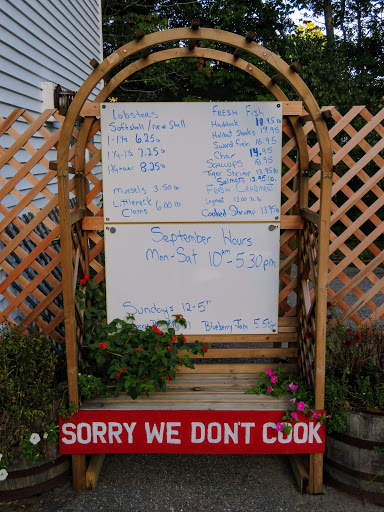 Lobsters
Softshell / new Shell
1-1 1/4 6.25
1 1/4-1 1/2 7.25
8.25
Mussels 3.50
Littleneck
Clams 6.00
FRESH Fish
Haddock 10.95
Halibut Steaks 17.95
Sword Fish
Char 14.95
Scallops 18.95
Tiger Shrimp 13.95
Salmon 12.95
FRESH Crabmeat
12.00
Cooked Shrimp 13.95
September Hours
Mon-Sat 10am-5:30pm
Sundays 12-5
Blueberry Jam
SORRY WE DON'T COOK